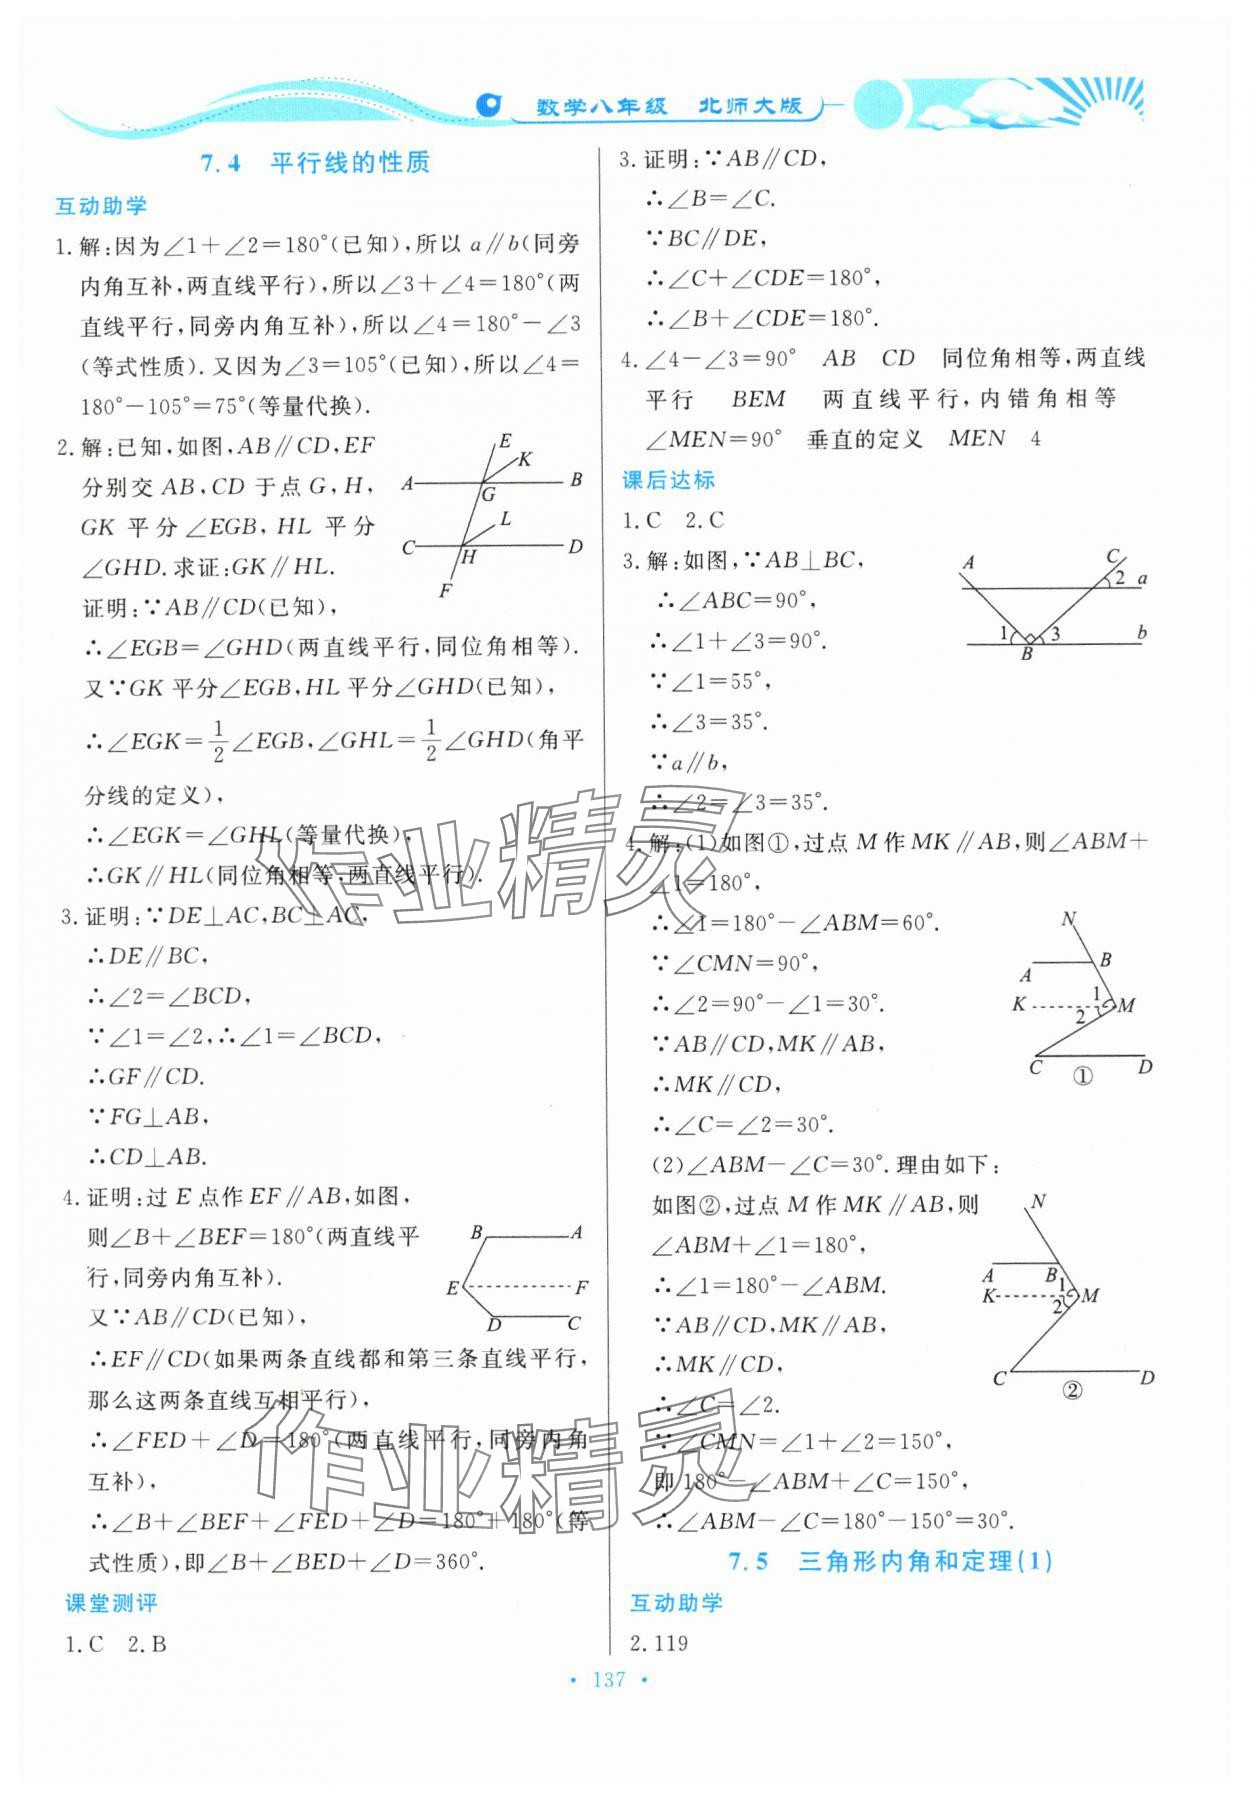 数学八年级 北师大版
7.4 平行线的性质
互动助学
1.解:因为∠1+∠2=180°(已知),所以 a∥b(同旁
内角互补,两直线平行),所以∠3+∠4=180°(两
直线平行,同旁内角互补),所以∠4=180°-∠3
(等式性质).又因为∠3=105°(已知),所以∠4=
180°-105°=75°(等量代换).
2.解:已知,如图,AB∥CD,EF
分别交 AB,CD 于点 G,H,
GK 平分∠EGB,HL 平分
∠GHD.求证:GK∥HL.
证明:∵AB∥CD(已知),
E
K
A
B
G
L
C
D
H
F
∴∠EGB=∠GHD(两直线平行,同位角相等).
又∵GK 平分∠EGB,HL 平分∠GHD(已知),
∴∠EGK=1/2∠EGB,∠GHL=1/2∠GHD(角平
分线的定义),
∴∠EGK=∠GHL(等量代换),
∴GK∥HL(同位角相等,两直线平行).
3.证明:∵DE⊥AC,BC⊥AC,
∴DE∥BC,
∴∠2=∠BCD,
∵∠1=∠2,∴∠1=∠BCD,
∴GF∥CD.
∵FG⊥AB,
∴CD⊥AB.
4.证明:过 E 点作 EF∥AB,如图,
则∠B+∠BEF=180°(两直线平
行,同旁内角互补).
又∵AB∥CD(已知),
B
A
E
F
D
C
∴EF∥CD(如果两条直线都和第三条直线平行,
那么这两条直线互相平行),
∴∠FED+∠D=180°(两直线平行,同旁内角
互补),
∴∠B+∠BEF+∠FED+∠D=180°+180°(等
式性质),即∠B+∠BED+∠D=360°.
课堂测评
1.C 2.B
3.证明:∵AB∥CD,
∴∠B=∠C.
∵BC∥DE,
∴∠C+∠CDE=180°,
∴∠B+∠CDE=180°.
4.∠4-∠3=90° AB CD 同位角相等,两直线
平行 BEM 两直线平行,内错角相等
∠MEN=90° 垂直的定义 MEN 4
课后达标
1.C 2.C
3.解:如图,∵AB⊥BC,
∴∠ABC=90°,
∴∠1+∠3=90°.
∵∠1=55°,
∴∠3=35°.
∵a∥b,
∴∠2=∠3=35°.
A
C
2
a
1
3
b
B
4.解:(1)如图①,过点 M 作 MK∥AB,则∠ABM+
∠1=180°,
∴∠1=180°-∠ABM=60°.
∵∠CMN=90°,
∴∠2=90°-∠1=30°.
∵AB∥CD,MK∥AB,
∴MK∥CD,
∴∠C=∠2=30°.
N
A
B
K
1
2
M
C
D
①
(2)∠ABM-∠C=30°.理由如下:
如图②,过点 M 作 MK∥AB,则
∠ABM+∠1=180°,
∴∠1=180°-∠ABM.
∵AB∥CD,MK∥AB,
∴MK∥CD,
∴∠C=∠2.
N
A
B
K
1
2
M
C
D
②
∵∠CMN=∠1+∠2=150°,
即 180°-∠ABM+∠C=150°,
∴∠ABM-∠C=180°-150°=30°.
7.5 三角形内角和定理(1)
互动助学
2.119
·137·
作业精灵
作业精灵